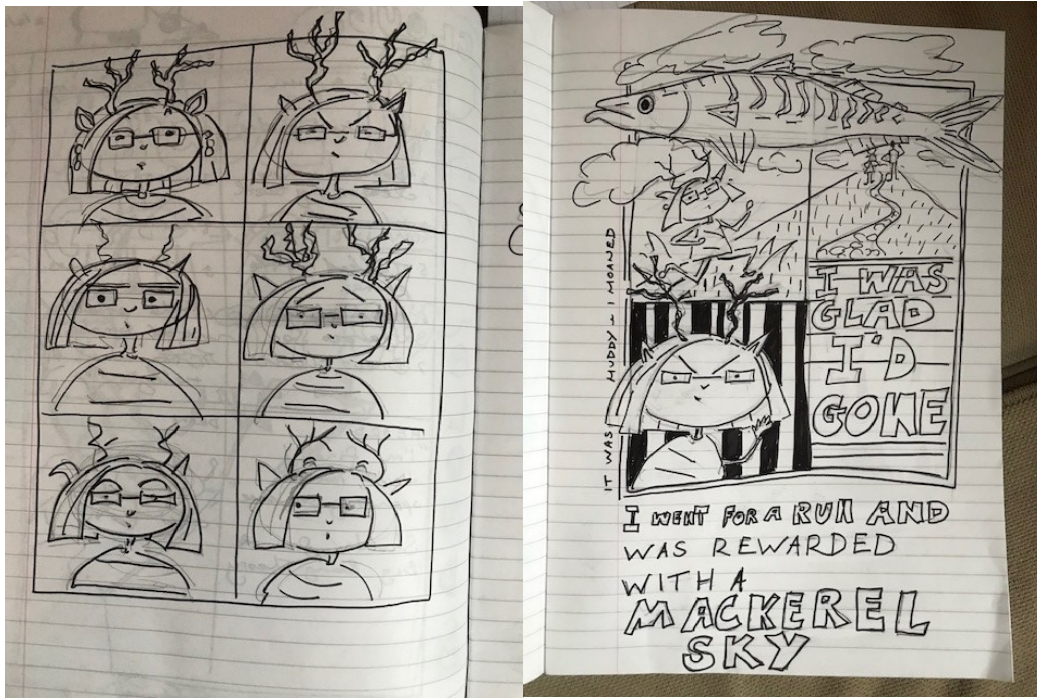 IT WAS MUDDY – I MOANED
I WAS
GLAD
I'D
GONE
I WENT FOR A RUN AND
WAS REWARDED
WITH A
MACKEREL
SKY